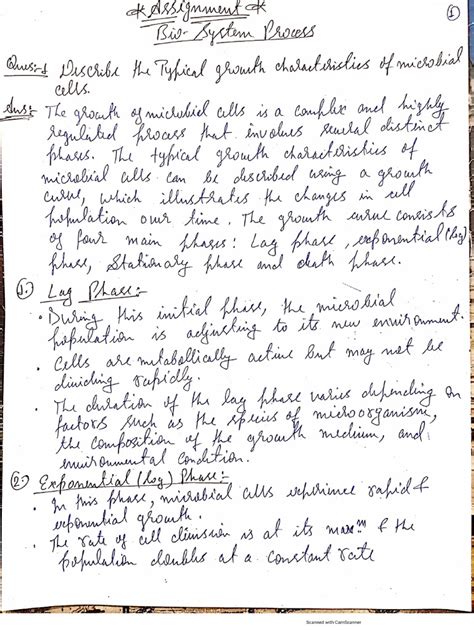 * Assignment *
①
Bio-System Process
Ques:-1 Describe the Typical growth characteristics of microbial
cells.
Ans:- The growth of microbial cells is a complex and highly
regulated process that involves several distinct
phases. The typical growth characteristics of
microbial cells can be described using a growth
curve, which illustrates the changes in cell
population over time. The growth curve consists
of four main phases: Lag phase, exponential (log)
phase, Stationary phase and death phase.
1. Lag Phase:-
• During this initial phase, the microbial
population is adjusting to its new environment.
• Cells are metabollically active but may not be
dividing rapidly.
• The duration of the lag phase varies depending on
factors such as the species of microorganism,
the composition of the growth medium, and
environmental condition.
2. Exponential (Log) Phase:-
• In this phase, microbial cells experience rapid &
exponential growth.
• The rate of cell division is at its maxm & the
population doubles at a constant rate
Scanned with CamScanner